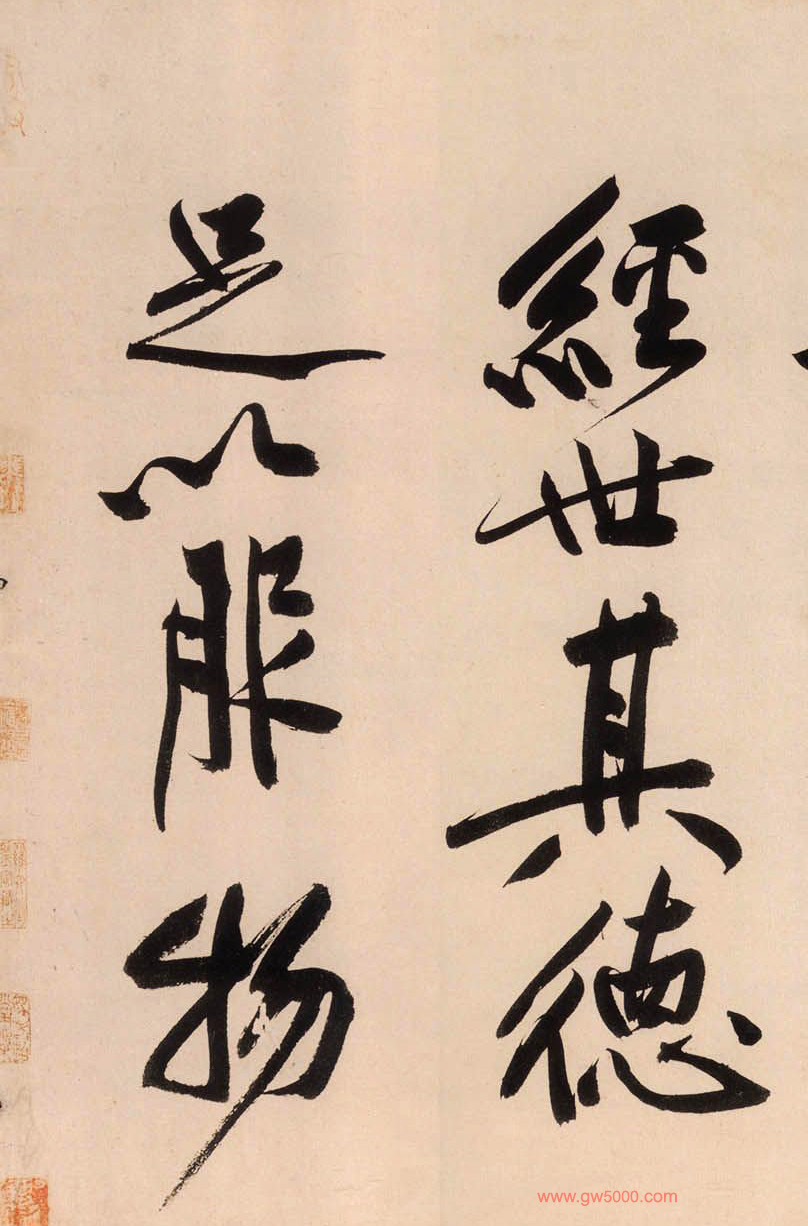 經世其德
足以服物
www.gw5000.com